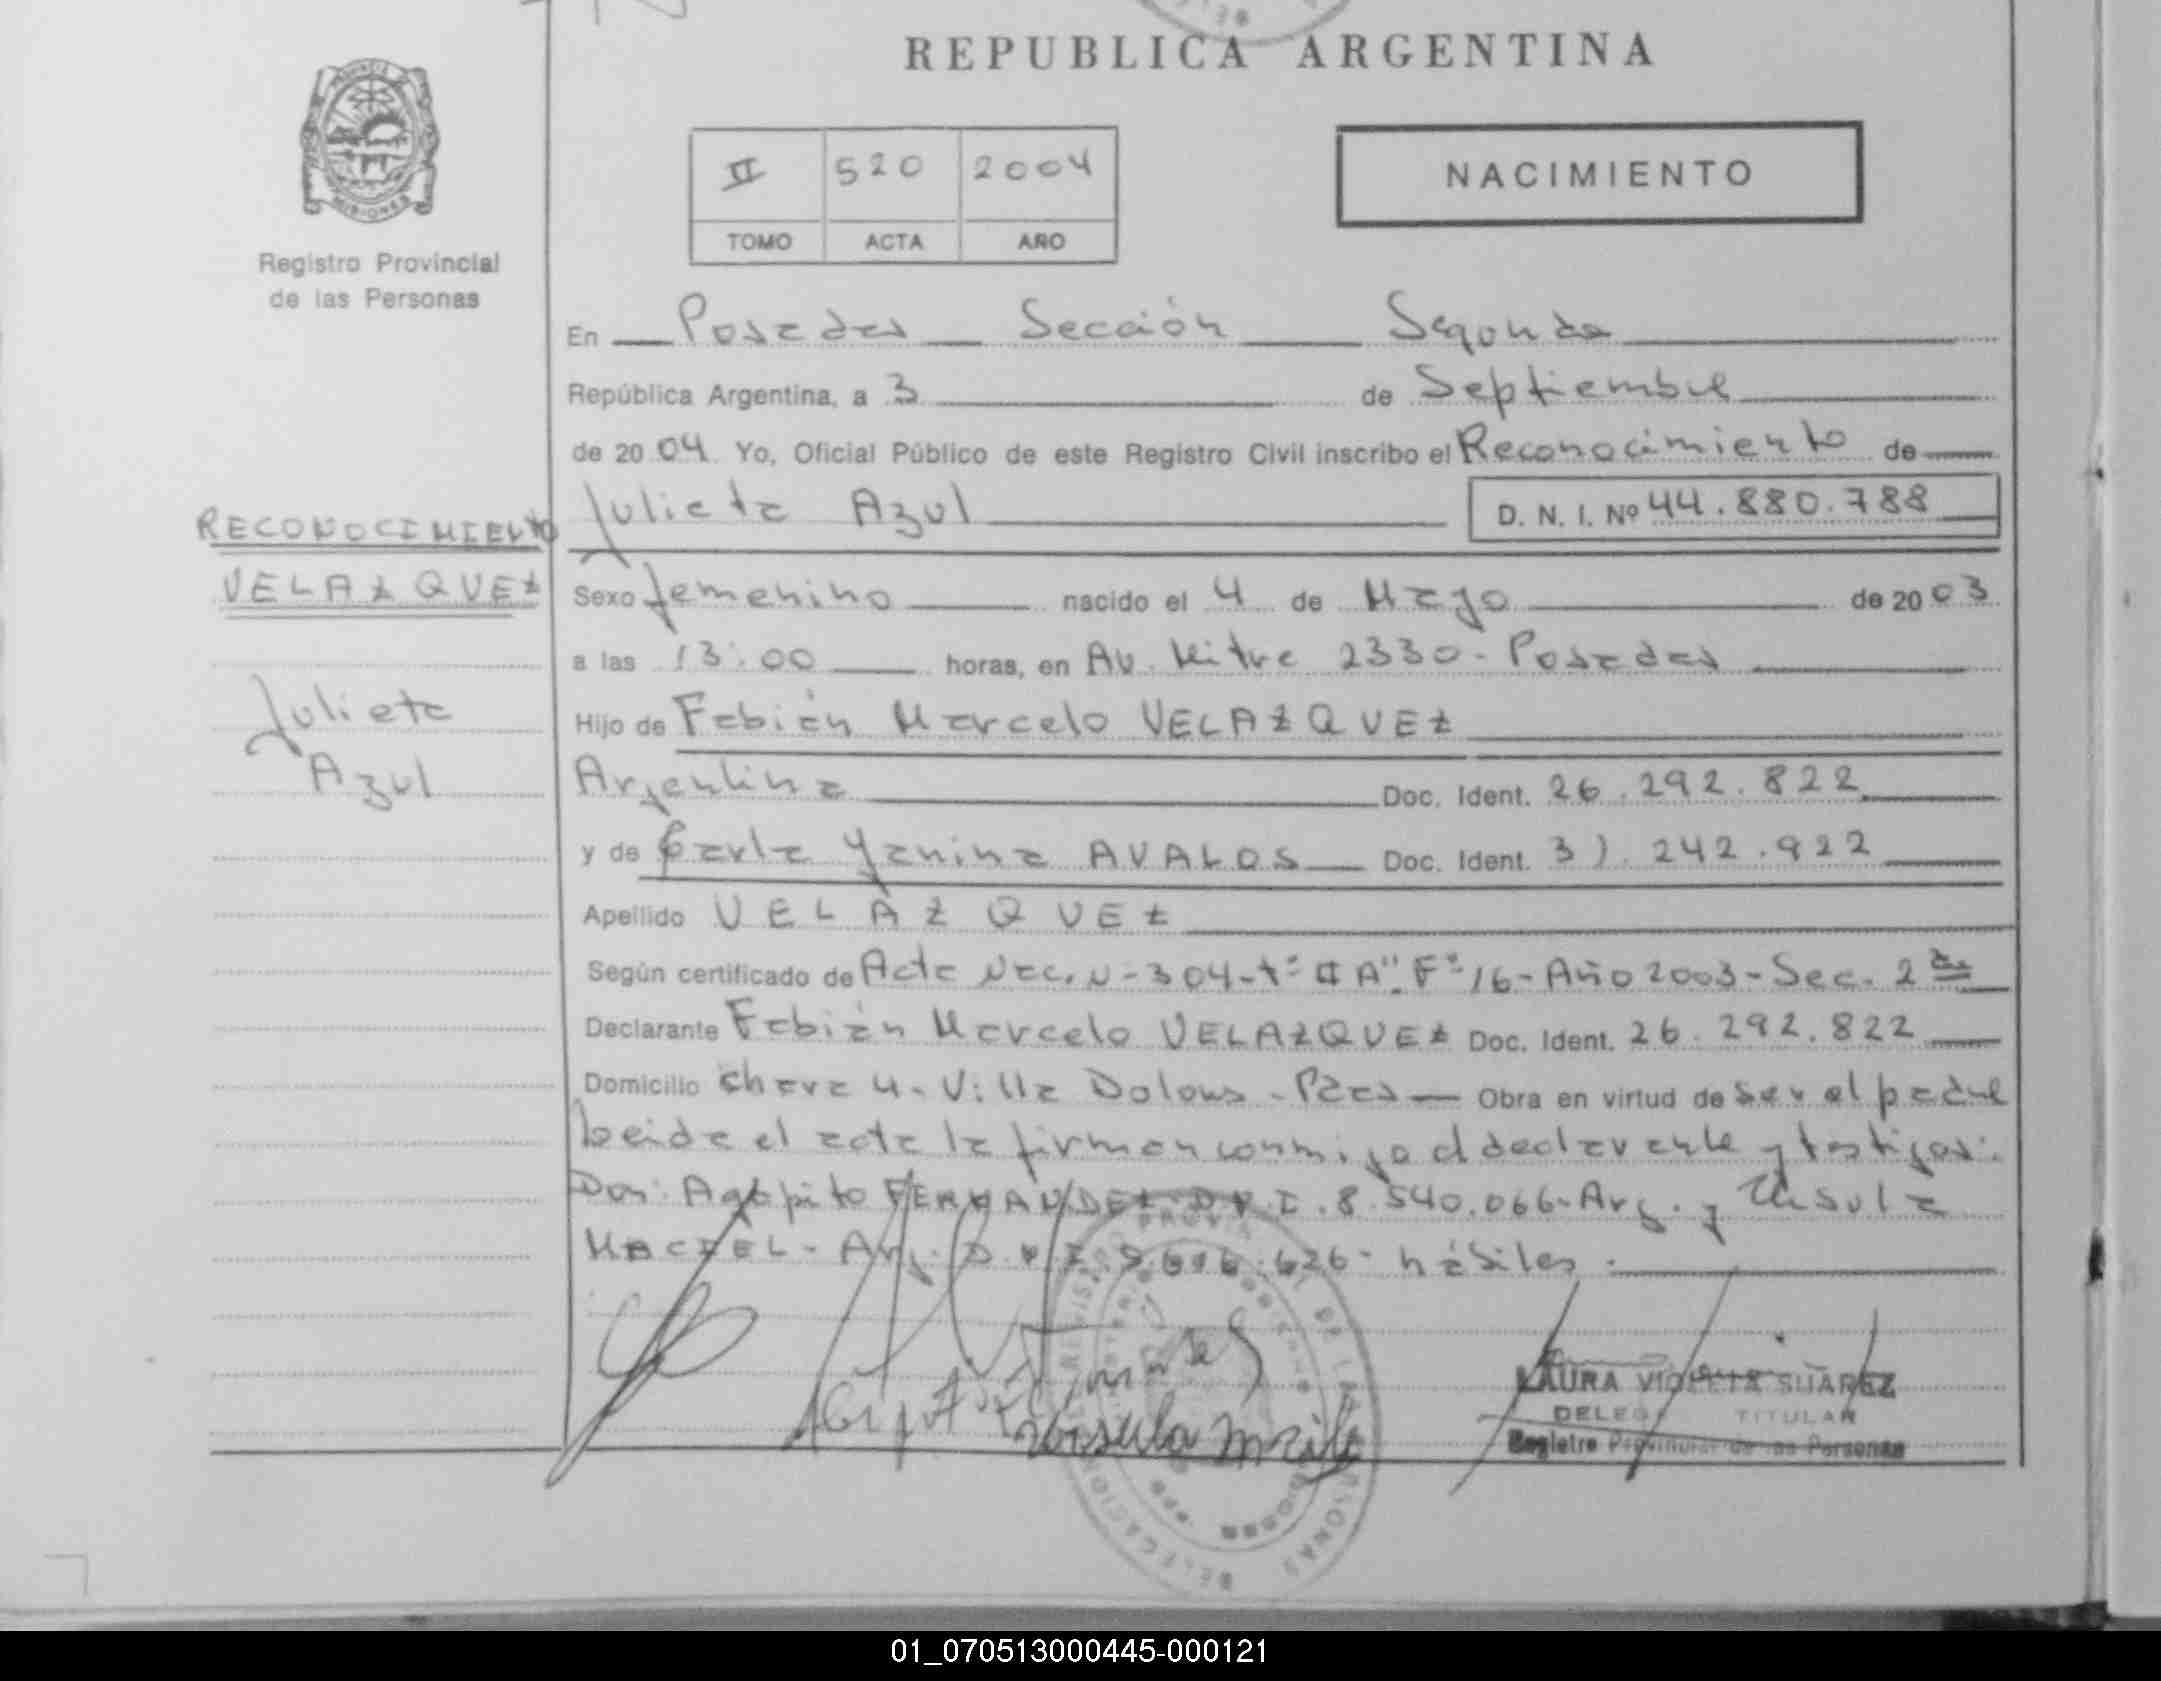 REPUBLICA ARGENTINA
II 520 2004
TOMO ACTA AÑO
NACIMIENTO
MISIONES
Registro Provincial
de las Personas
En Posadas Sección Segunda
República Argentina, a 3 de Septiembre
de 2004 Yo, Oficial Público de este Registro Civil inscribo el Reconocimiento de
Julieta Azul D. N. I. Nº 44.880.788
RECONOCIMIENTO
VELAZQUEZ
Julieta
Azul
Sexo femenino nacido el 4 de Mayo de 2003
a las 13:00 horas, en Av. Mitre 2330 - Posadas
Hijo de Fabián Marcelo VELAZQUEZ
Argentina Doc. Ident. 26.292.822
y de Carla Yanina AVALOS Doc. Ident. 31.242.922
Apellido VELAZQUEZ
Según certificado de Acta Nac. N-304-tº "A" Fº 16-Año 2003-Sec. 2da
Declarante Fabián Marcelo VELAZQUEZ Doc. Ident. 26.292.822
Domicilio Chacra 4-Villa Dolores - Obra en virtud de ser el padre
Leida el acta la firman conmigo el declarante y testigos:
Don: Agapito FERNANDEZ D.N.I. 8.540.066-Arg. y Ursula
MACIEL - Arg. D.N.I. 626- hábiles.
Ursula
LAURA VIOLETA SUAREZ
DELEGADA TITULAR
Registro Provincial de las Personas
01_070513000445-000121